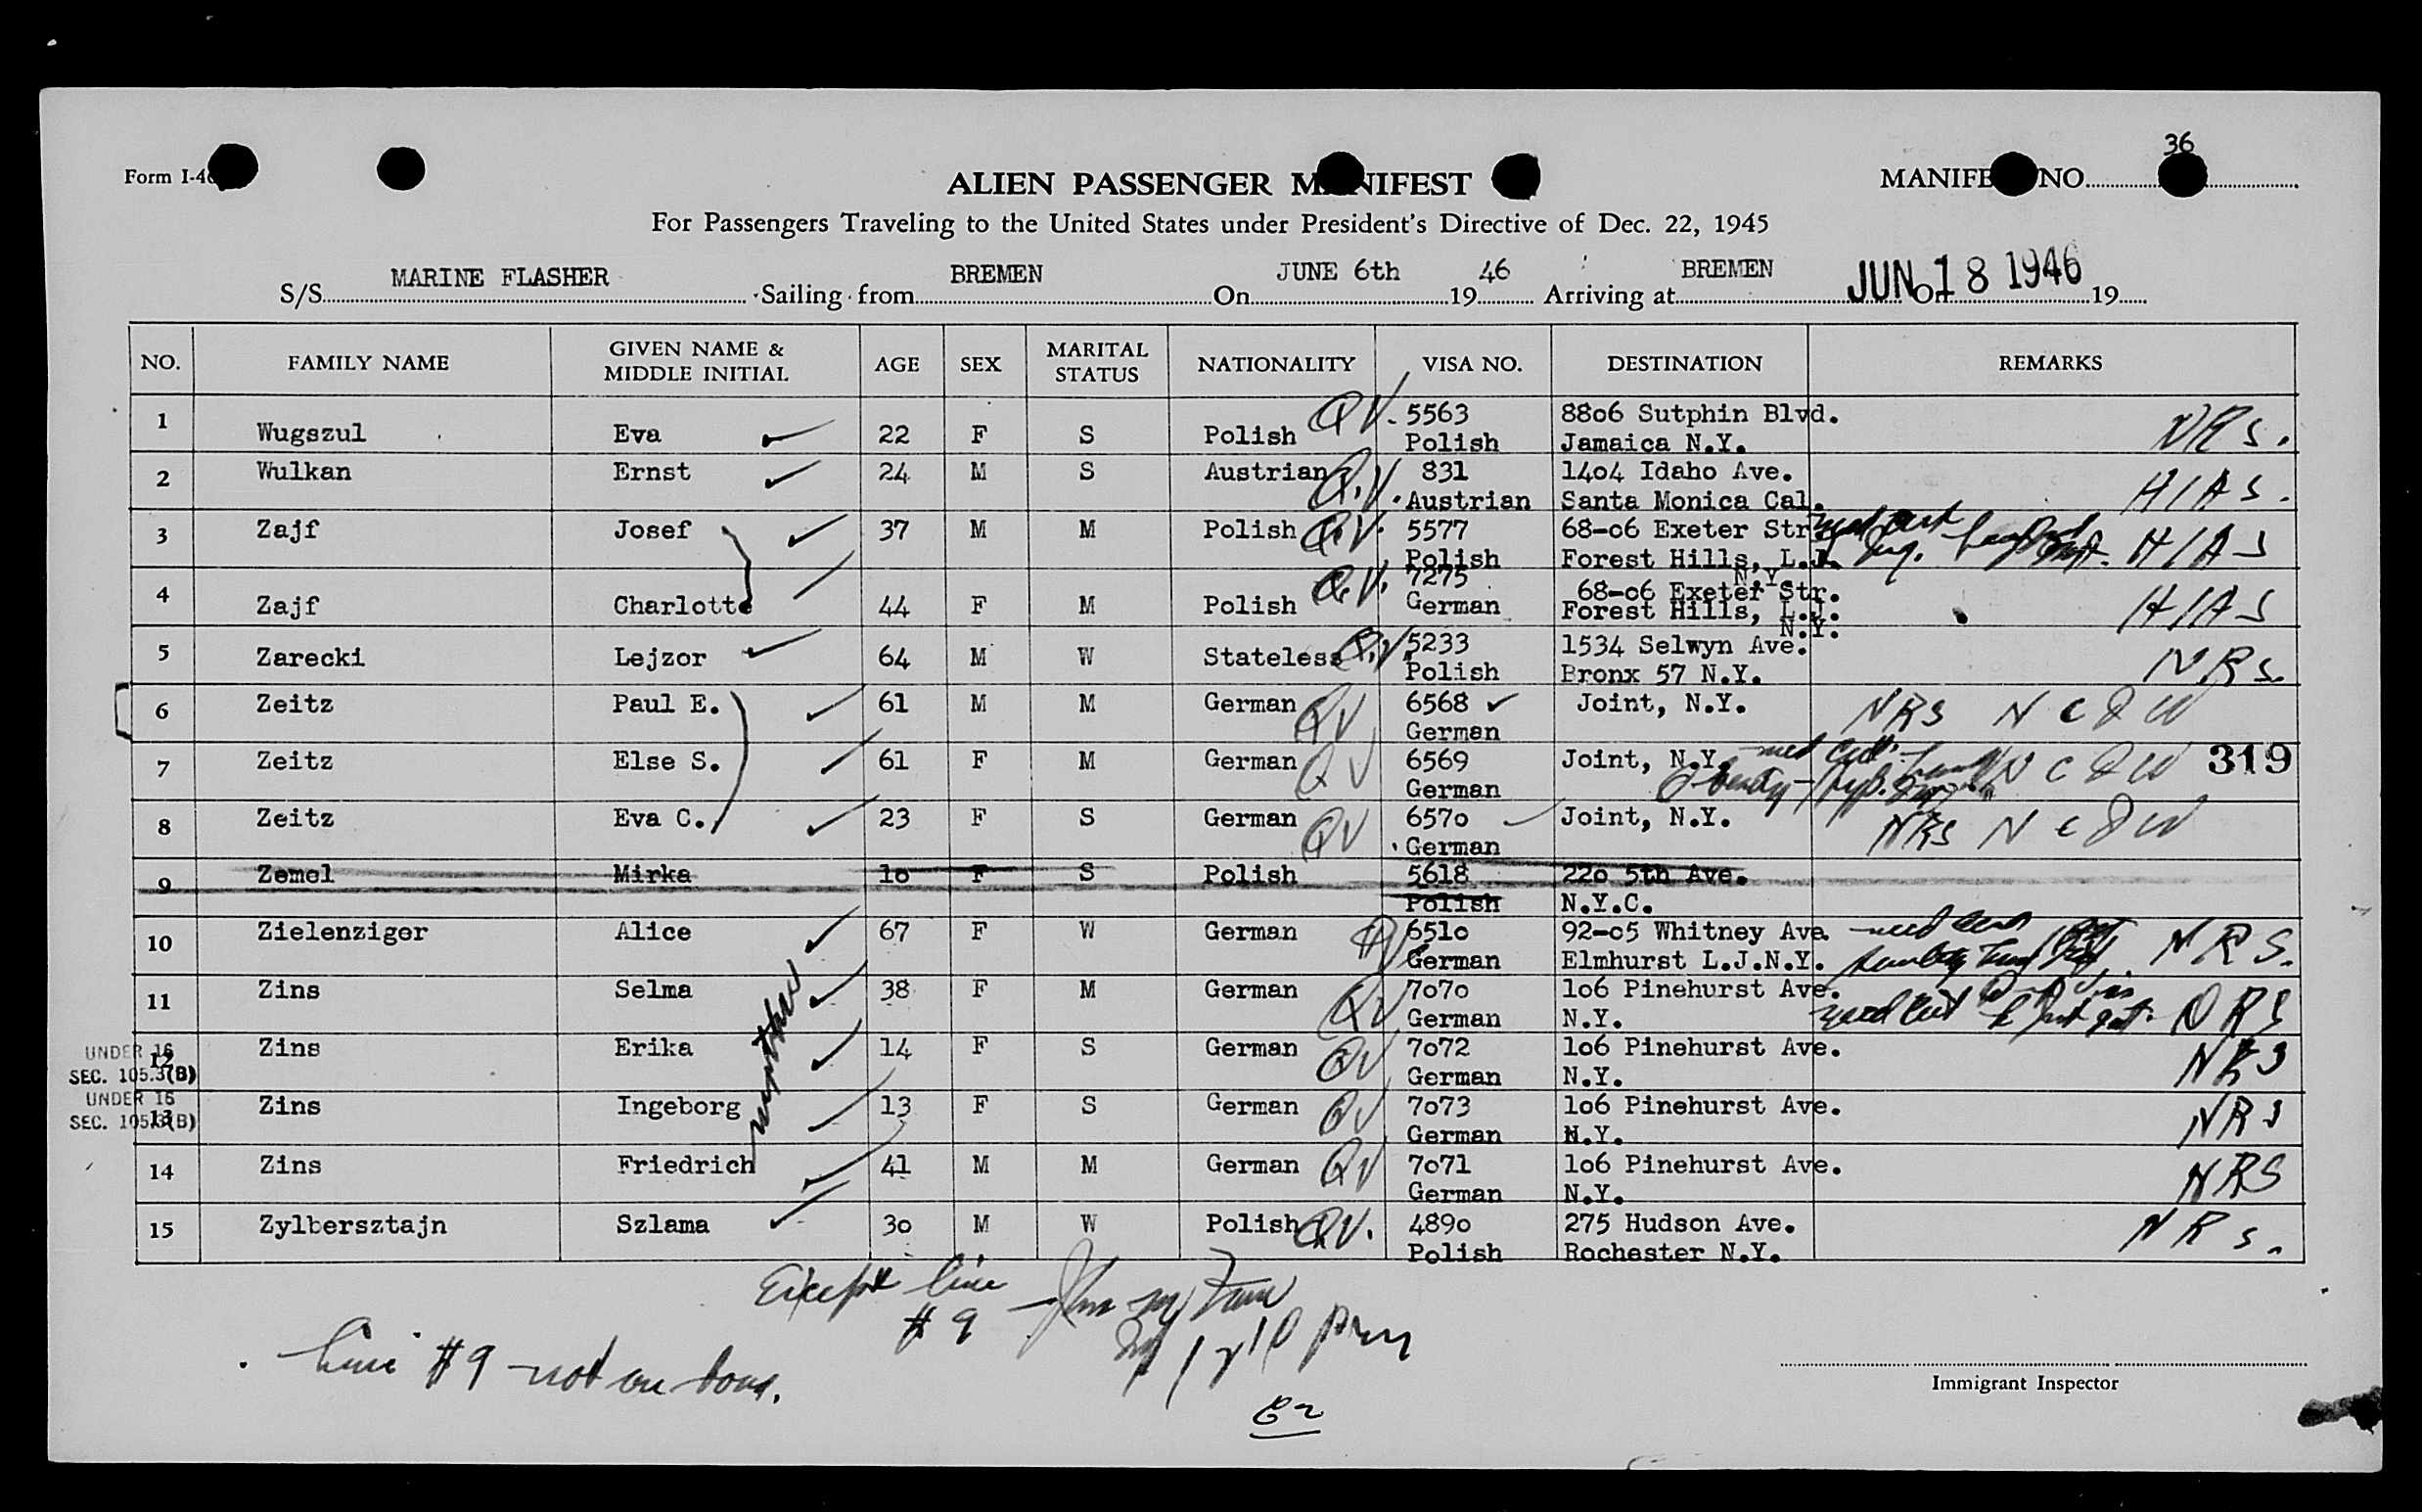 36
Form I-4
ALIEN PASSENGER M NIFEST
MANIFE NO.
For Passengers Traveling to the United States under President's Directive of Dec. 22, 1945
S/S MARINE FLASHER Sailing from BREMEN On JUNE 6th 19 46 Arriving at BREMEN On JUN 18 1946 19
NO. FAMILY NAME GIVEN NAME & MIDDLE INITIAL AGE SEX MARITAL STATUS NATIONALITY VISA NO. DESTINATION REMARKS
1 Wugszul Eva 22 F S Polish QV. 5563 Polish 8806 Sutphin Blvd. Jamaica N.Y. NRS.
2 Wulkan Ernst 24 M S Austrian Q.V. 831 Austrian 1404 Idaho Ave. Santa Monica Cal. HIAS.
3 Zajf Josef 37 M M Polish Q.V. 5577 Polish 68-06 Exeter Str. Forest Hills, L.J. N.Y. med cert HIAS
4 Zajf Charlotte 44 F M Polish Q.V. 7275 German 68-06 Exeter Str. Forest Hills, L.J. N.Y. HIAS
5 Zarecki Lejzor 64 M W Stateless Q.V. 5233 Polish 1534 Selwyn Ave. Bronx 57 N.Y. NRS.
6 Zeitz Paul E. 61 M M German QV 6568 German Joint, N.Y. NRS N C D W
7 Zeitz Else S. 61 F M German QV 6569 German Joint, N.Y. med cert. N C D W 319
8 Zeitz Eva C. 23 F S German QV 6570 German Joint, N.Y. NRS N C D W
9 Zemel Mirka 10 F S Polish 5618 Polish 220 5th Ave. N.Y.C.
10 Zielenziger Alice 67 F W German QV 6510 German 92-05 Whitney Ave. Elmhurst L.J.N.Y. med cert NRS.
11 Zins Selma 38 F M German QV 7070 German 106 Pinehurst Ave. N.Y. med cert NRS
UNDER 16 SEC. 105.3(B) 12 Zins Erika 14 F S German QV 7072 German 106 Pinehurst Ave. N.Y. NRS
UNDER 16 SEC. 105.3(B) 13 Zins Ingeborg 13 F S German QV 7073 German 106 Pinehurst Ave. N.Y. NRS
14 Zins Friedrich 41 M M German QV 7071 German 106 Pinehurst Ave. N.Y. NRS
15 Zylbersztajn Szlama 30 M W Polish QV. 4890 Polish 275 Hudson Ave. Rochester N.Y. NRS.
Except line
#9
Line #9 not on board.
Immigrant Inspector